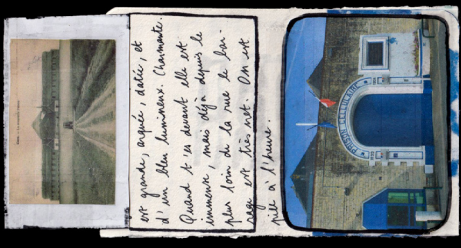 est grande, arquée, datée, et
d'un bleu lumineux. Charmante.
Quand t'es devant elle est
immense, mais déjà depuis le
plus loin de la rue le
est très net. On est
pile à l'heure.